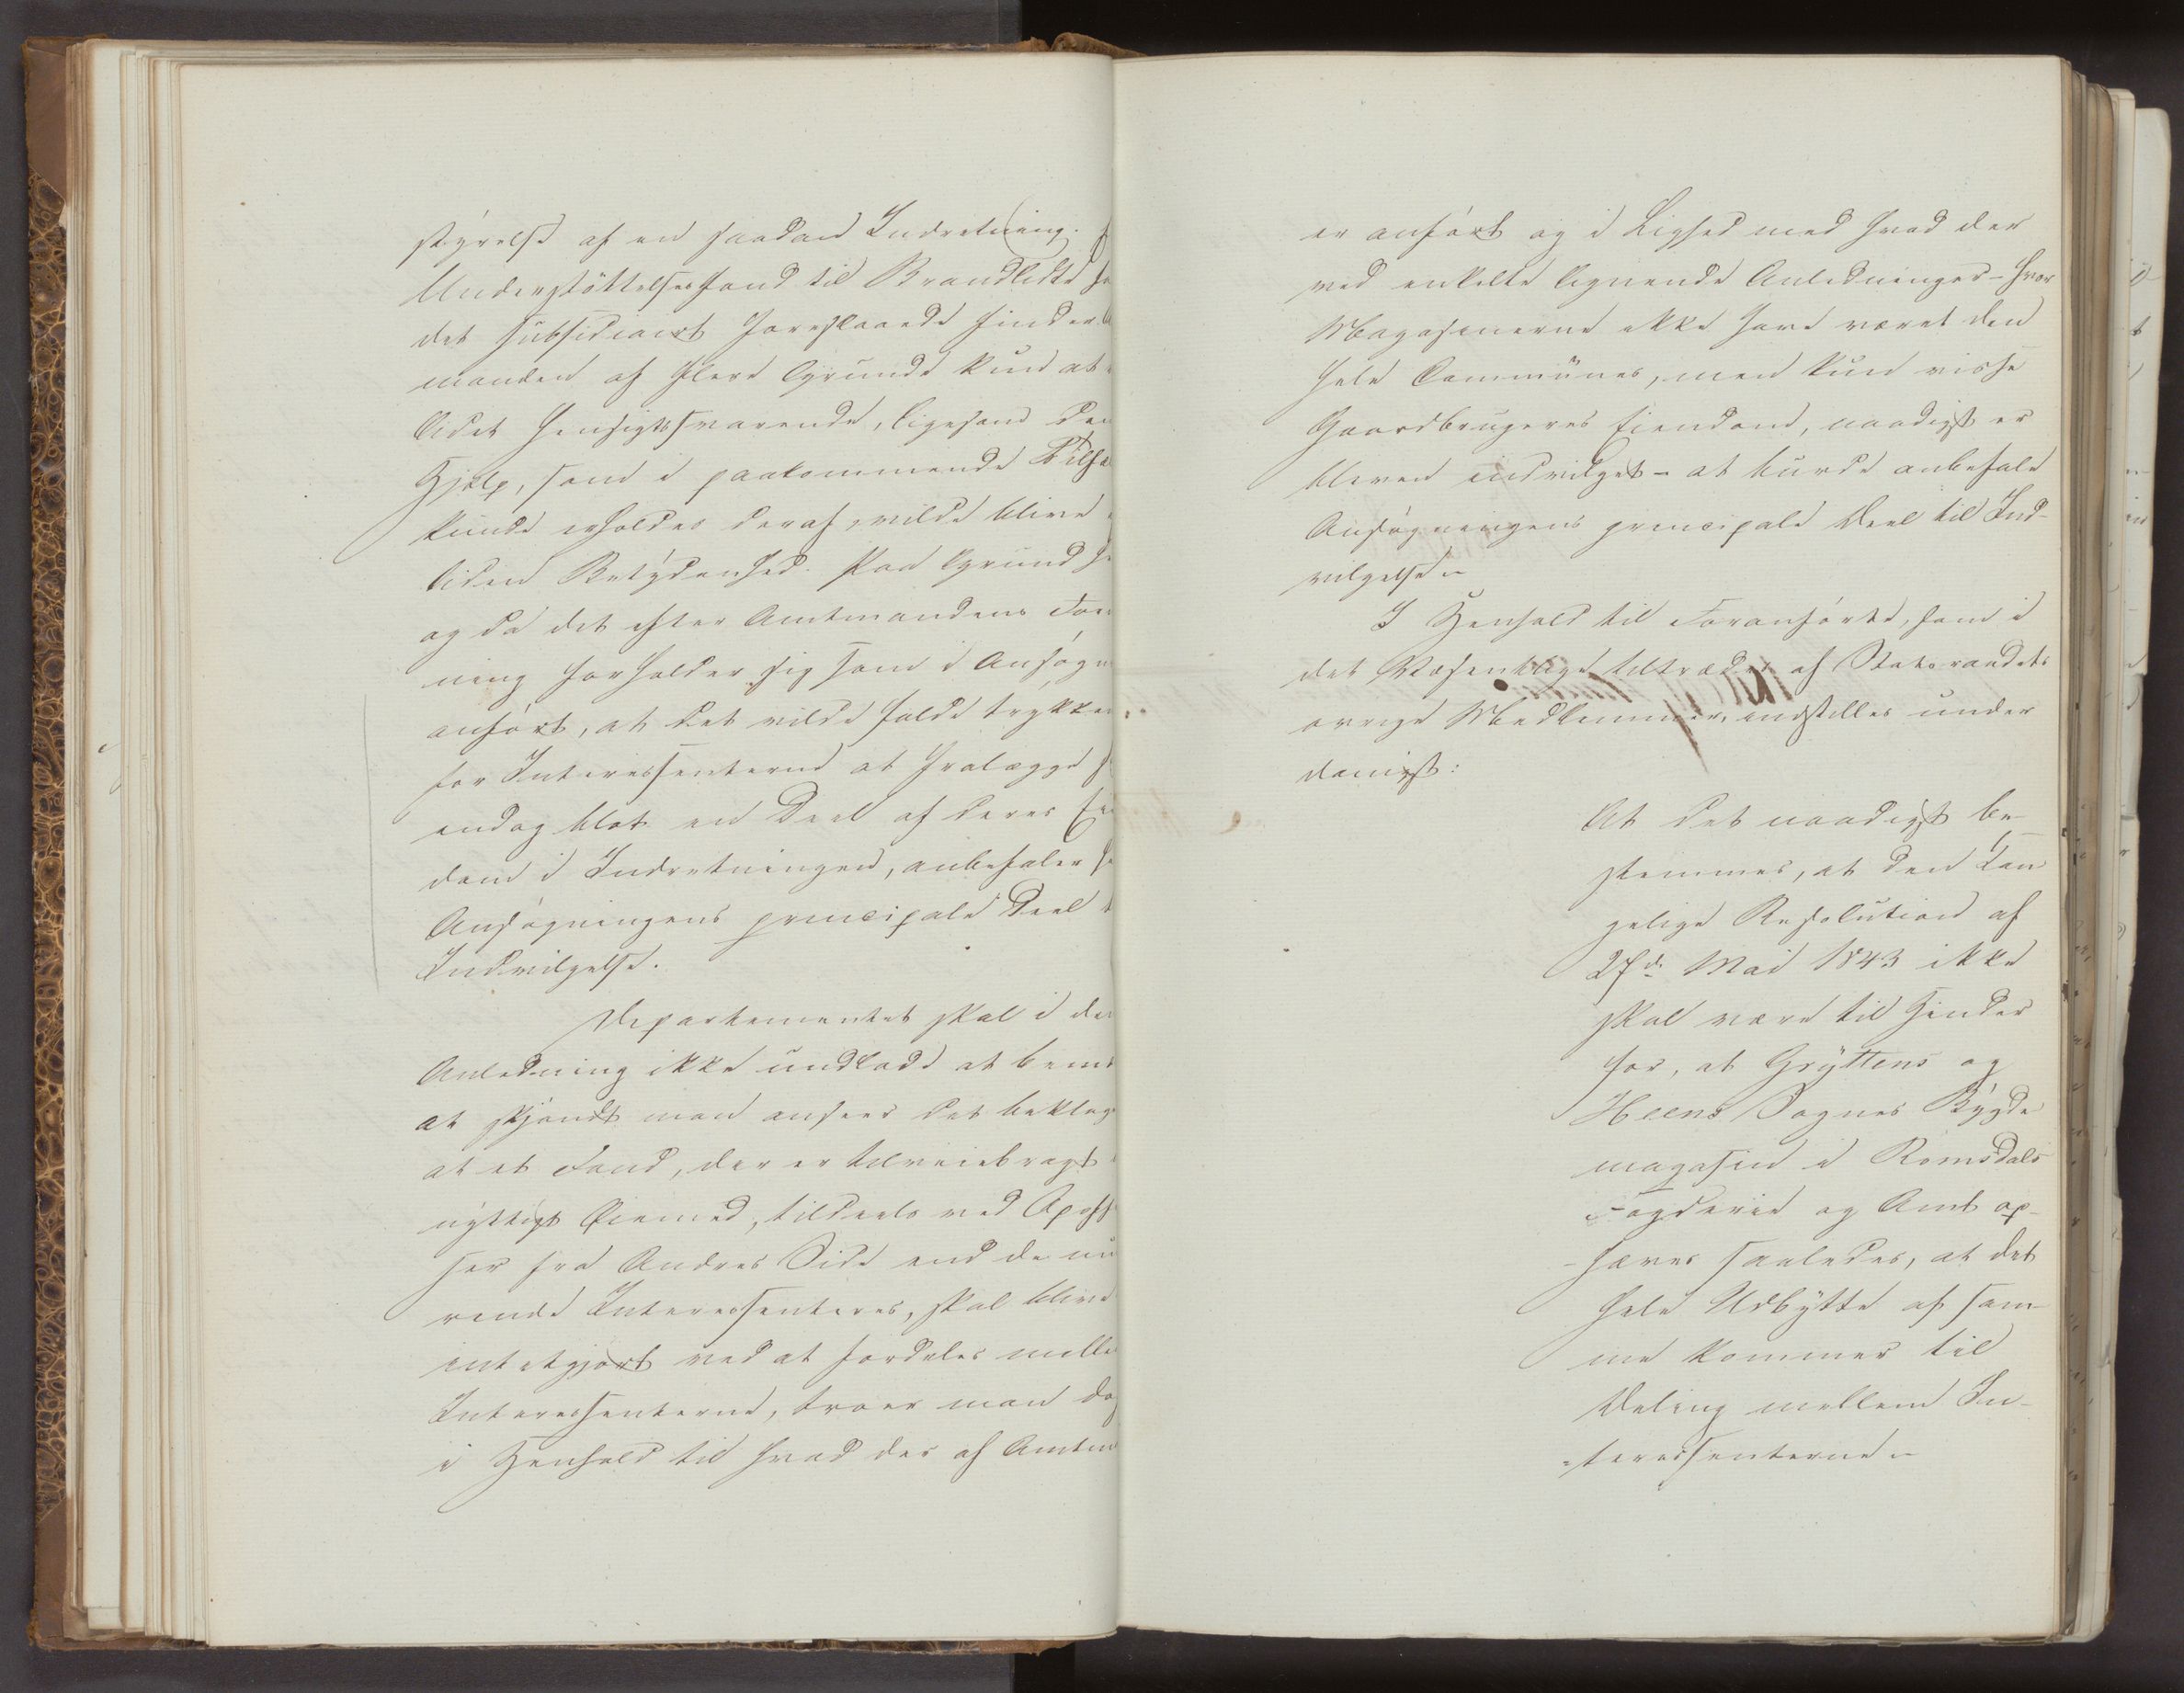 styrelse af en saadan Indretning.
Understøttelsesfond til Brandlidte
det subsidiairt foreslaaede finder
manden af flere Grunde kun at
lidet hensigtssvarende, ligesom den
Hjelp, som i paakommende Tilfæ
kunde erholdes deraf, vilde blive
liden Betydenhed. Paa Grund
og da det efter Amtmandens For
ning forholder sig som i Ansøgn
anført, at det vilde falde trykken
for Interessenterne at fralægge
endog blot en Deel af deres Ei
dom i Indretningen, anbefaler
Ansøgningens principale Deel t
Indvilgelse.
Departementet skal i den
Anledning ikke undlade at bem
at skjøndt man anseer det beklag
at et Fond, der er tilveiebragt
nyttigt Øiemed, tildeels ved Opoff
ser fra Andres Side end de nu
rende Interessenteres, skal blive
intetgjort ved at fordeles melle
Interessenterne, troer man dog
i Henhold til hvad der af Amtm
er anført og i Lighed med hvad der
ved enkelte lignende Anledninger - hvor
Magasinerne ikke have været den
hele Communes, men kun visse
Gaardbrugeres Eiendom, naadigst er
bleven indvilget - at burde anbefale
Ansøgningens principale Deel til Ind-
vilgelse.
I Henhold til Foranførte, som i
det Væsentlige tiltrædes af Statsraadets
øvrige Medlemmer, indstilles under
danigst:
At det naadigst be-
stemmes, at den Kon
gelige Resolution af
27de Mai 1843 ikke
skal være til Hinder
for, at Gryttens og
Heens Sognes Bygde
magasin i Romsdals
Fogderie og Amt op-
hæves saaledes, at det
hele Udbytte af sam-
me kommer til
Deling mellem In-
teressenterne.